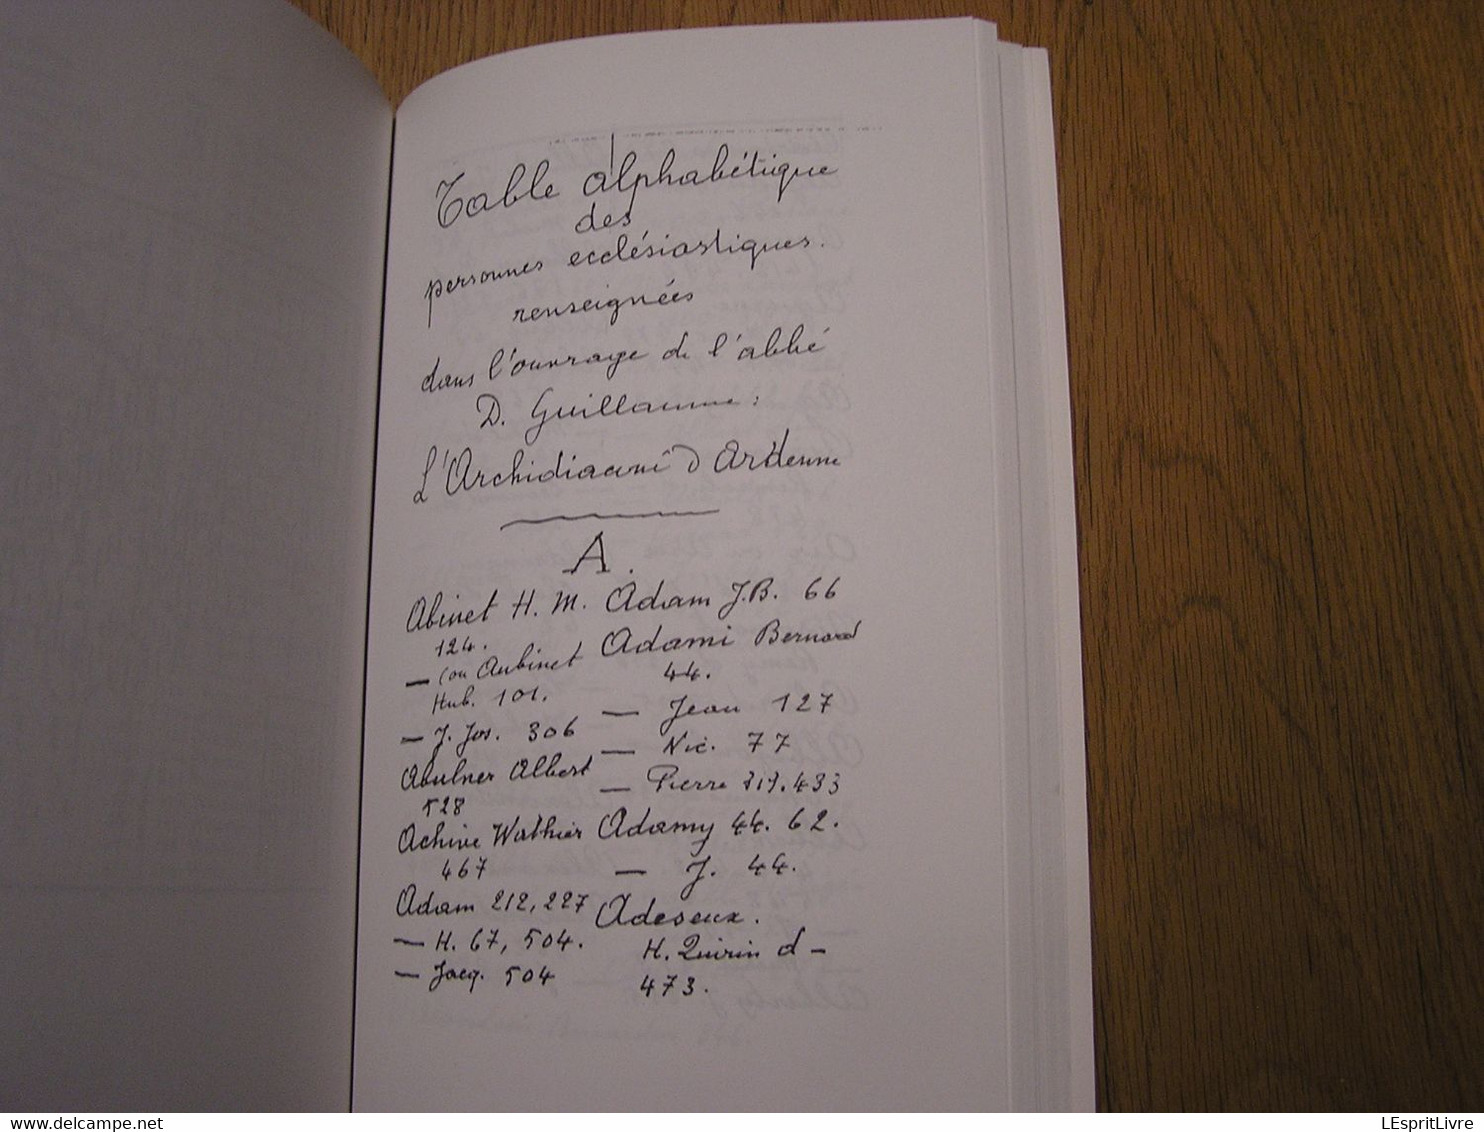 Table alphabétique
des
personnes ecclésiastiques.
renseignées
dans l'ouvrage de l'abbé
D. Guillaume :
L'Archidiaconé d'Ardenne
A.
Abinet H. M.
124.
— (ou Aubinet
Hub. 101.
— J. Jos. 306
Abulner Albert
528
Achive Wathier
467
Adam 212, 227
— H. 67, 504.
— Jacq. 504
Adam J.B. 66
Adami Bernard
44.
— Jean 127
— Nic. 77
— Pierre 433
Adamy 44. 62.
— J. 44.
Adeseux.
H. Quirin d —
473.
© delcampe.net
LEspritLivre